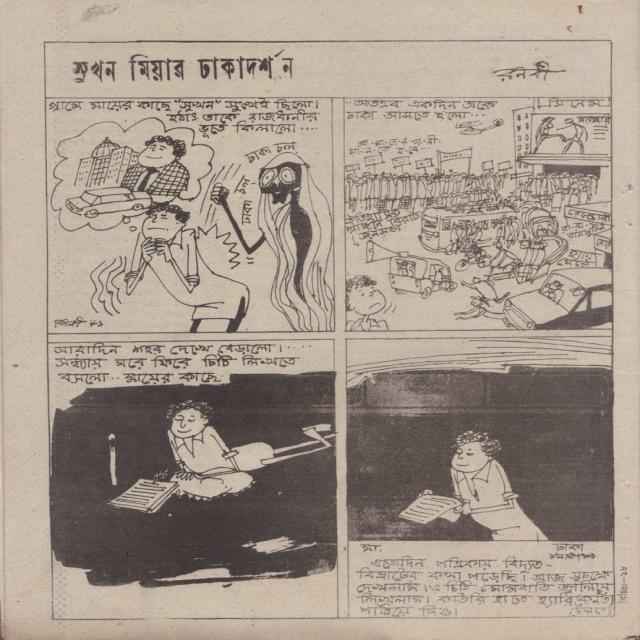 সুখন মিয়ার ঢাকাদর্শন
রনবী
গ্রামে মায়ের কাছে "সুখন" সুখেই ছিলো।
হঠাৎ তাকে রাজধানীর
ভূতে কিলালো....
ঢাকা চল
ঢাকা চল
অতএব একদিন তাকে
ঢাকা আসতে হলো...
সিনেমা
সারাদিন শহর দেখে বেড়ালো।....
সন্ধ্যায় ঘরে ফিরে চিঠি লিখতে
বসলো.. মায়ের কাছে.
মা,
ঢাকা
এতোদিন পত্রিকায় বিদ্যুত-
বিভ্রাটের কথা পড়েছি। আজ স্বচক্ষে
দেখলাম। এ চিঠি মোমবাতি জ্বালিয়ে
লিখলাম। কাউরি হাতে হ্যারিকেনটা
পাঠিয়ে দিও।